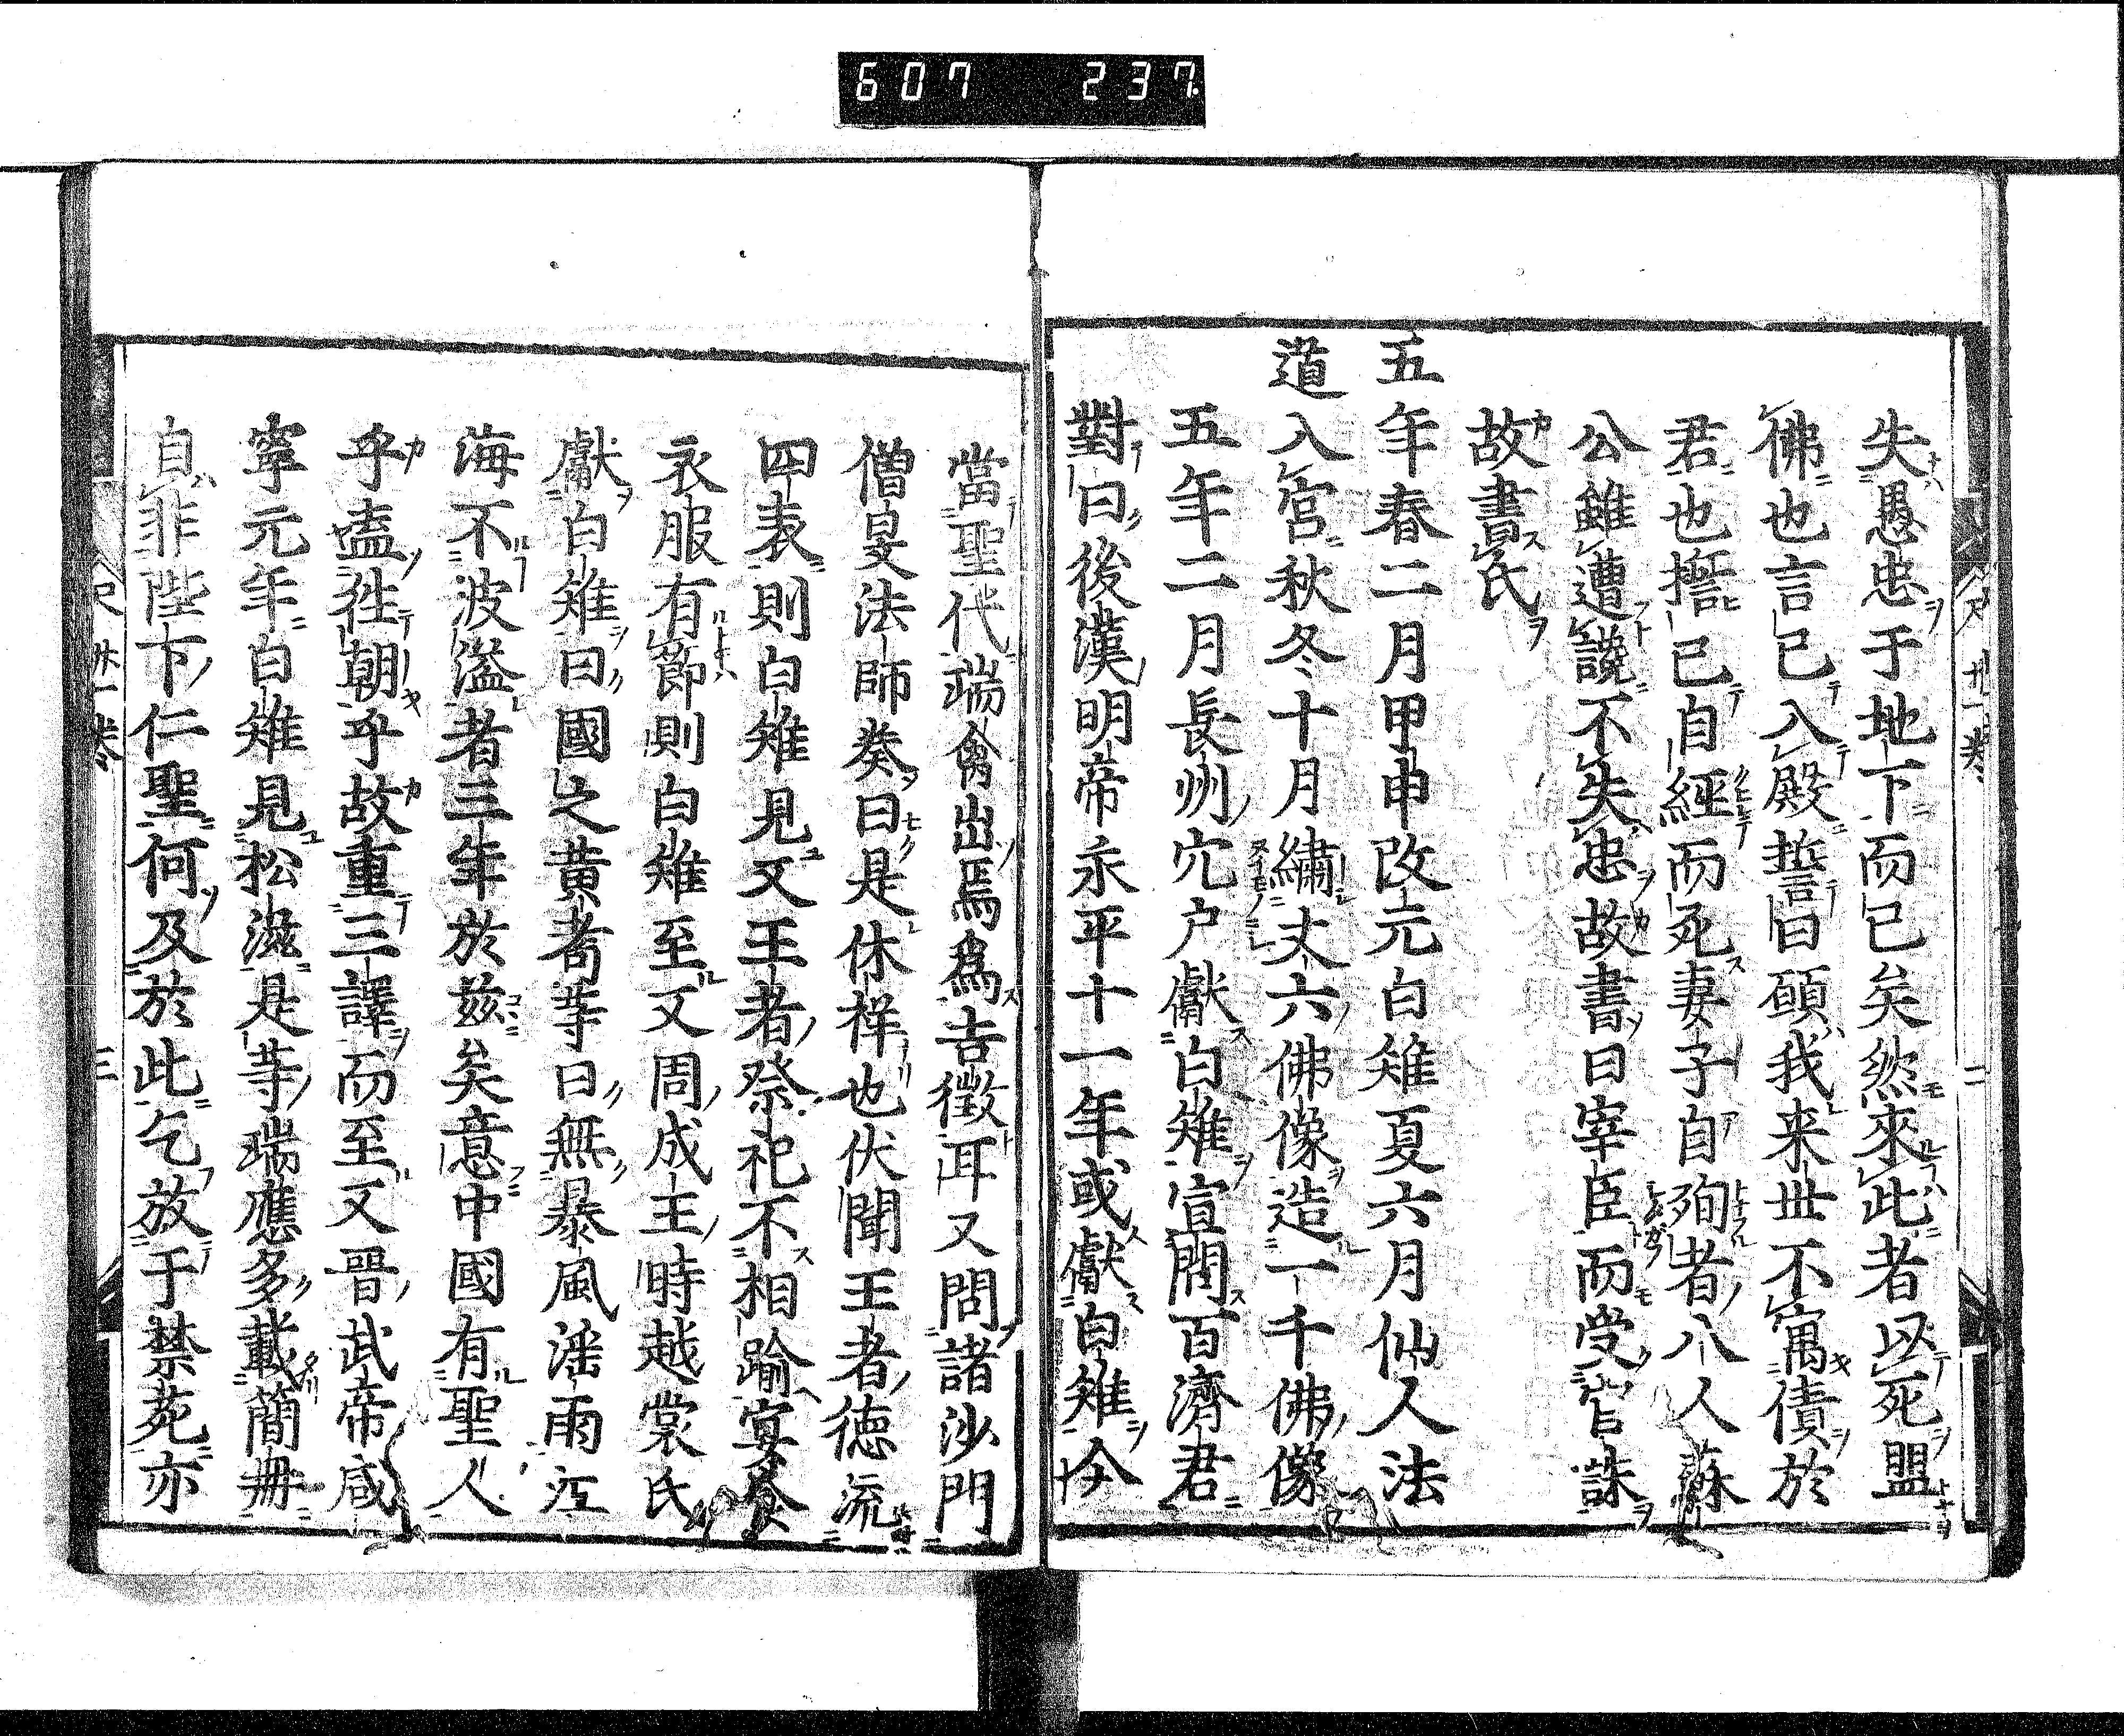 607 237
失愚忠于地下而已矣然來此者以死盟
佛也言已入殿誓曰願我来世不寓債於
君也誓已自經而死妻子自殉者八人蘇
公雖遭讒不失忠故書曰宰臣而受官誅
故書氏
五年春二月甲申改元白雉夏六月仙人法
道入宮秋冬十月繡丈六佛像造一千佛像
五年二月長州穴户獻白雉宣問百濟君
對曰後漢明帝永平十一年或獻白雉今
當聖代端禽出焉為吉徴耳又問諸沙門
僧旻法師奏曰是休祥也伏聞王者德流
四表則白雉見又王者祭祀不相踰宴食
衣服有節則白雉至又周成王時越裳氏
獻白雉曰國之黄耇等曰無暴風滛雨江
海不波溢者三年於兹矣意中國有聖人
乎盍徃朝乎故重三譯而至又晉武帝咸
寧元年白雉見松滋是等瑞應多載簡冊
自非陛下仁聖何及於此乞放于禁苑亦
卄一卷
二
卄一卷
三